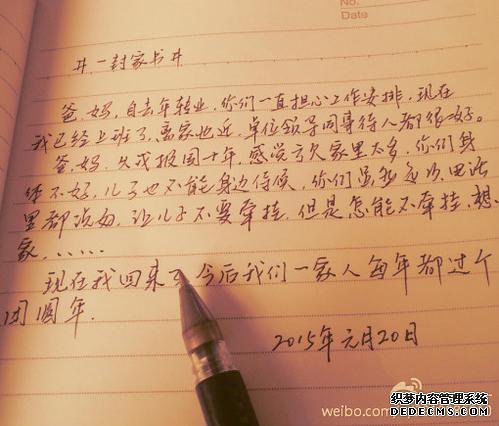 No.
Date
# 一封家书 #
爸,妈,自去年转业,你们一直担心工作安排,现在
我已经上班了,离家也近,单位领导同事待人都很好。
爸,妈,久戍报国十年,感觉亏欠家里太多,你们身
体不好,儿子也不能身边侍候,你们虽然每次电话
里都说好,让儿子不要牵挂,但是怎能不牵挂,想
家,......
现在我回来了 今后我们一家人每年都过个
团圆年.
2015年元月20日
织梦内容管理系统
weibo.com
DEDECMS.COM